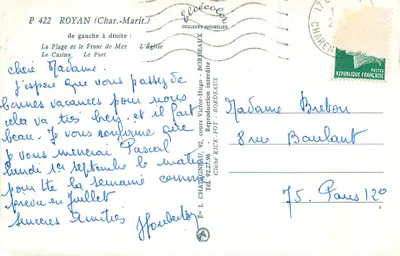 P 422 ROYAN (Char.-Marit.)
de gauche à droite :
La Plage et le Front de Mer L'Église
Le Casino Le Port
chère Madame.
J'espère que vous passez de
bonnes vacances pour nous
cela va très bien et il fait
beau. Je vous confirme que
Je vous menerai Pascal
lundi 1er septembre le matin
pour tte la semaine comme
prévu en Juillet
sincères Amitiés
Éts L. CHATAGNEAU, 92, cours Victor-Hugo - BORDEAUX
Tél. 92.27.96 Cliché RICK POT - BORDEAUX
Reproduction interdite
COULEURS NATURELLES
17
CHAREN
POSTES
REPUBLIQUE FRANÇAISE
Madame Breton
8 rue Baulant
75. Paris 12°